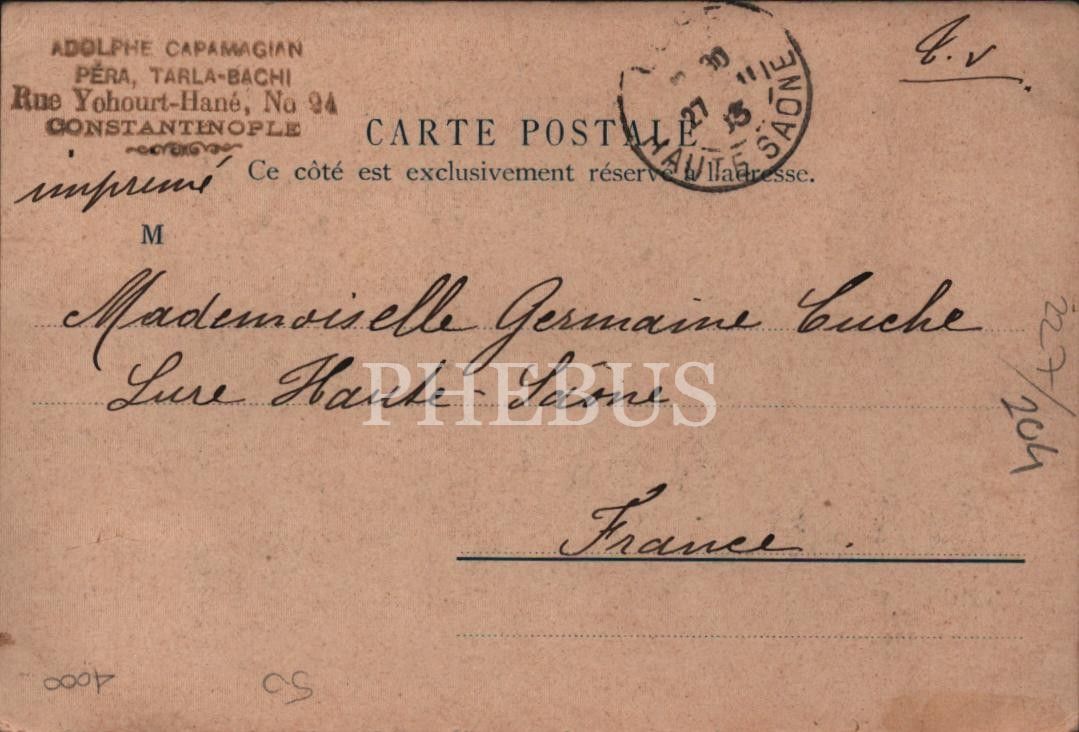 ADOLPHE CAPAMAGIAN
PÉRA, TARLA-BACHI
Rue Yohourt-Hané, No 24
CONSTANTINOPLE
imprimé
T. v
27 11
HAUTE SAONE
CARTE POSTALE
Ce côté est exclusivement réservé à l'adresse.
M
Mademoiselle Germaine Cuche
Lure Haute-Saône
PHEBUS
France.
204
4000
50